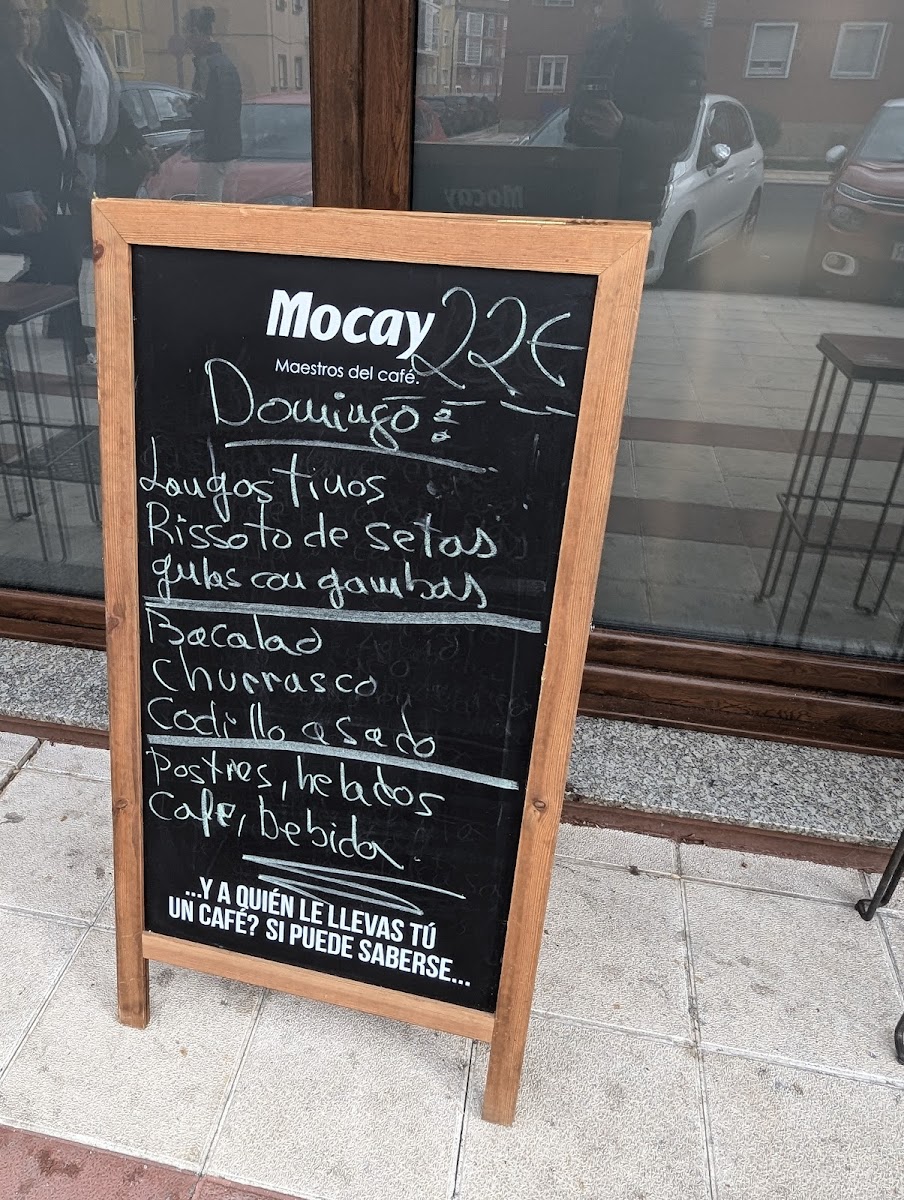 Mocay
22€
Maestros del café.
Domingo:
Langostinos
Rissoto de setas
gulas con gambas
Bacalao
Churrasco
Codillo asado
Postres, helados
Cafe, bebida.
...Y A QUIÉN LE LLEVAS TÚ
UN CAFÉ? SI PUEDE SABERSE...
Mocay